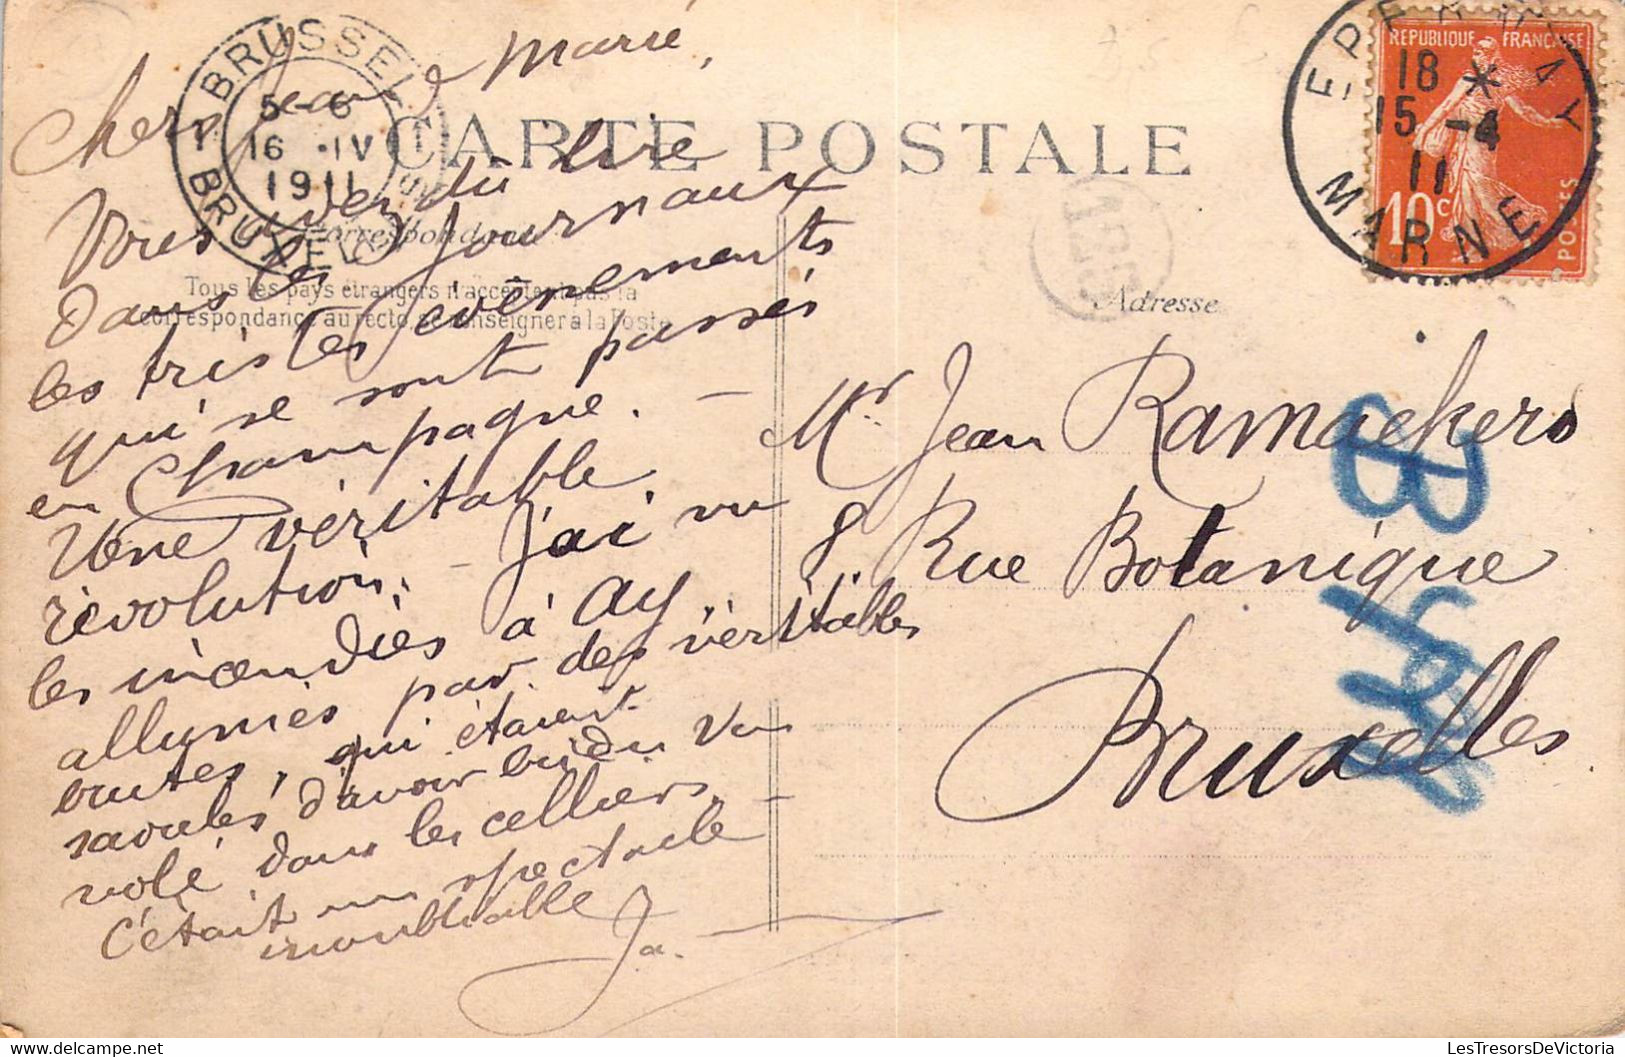 BRUSSEL 1 BRUXELLES
5-6
16 .IV
1911
CARTE POSTALE
Correspondance
Tous les pays étrangers n'acceptent pas la
correspondance au recto se renseigner à la Poste
Chers Jean & Marie,
Vous avez dû lire
dans les Journaux
les tristes évênements
qui se sont passés
en Champagne. —
Une véritable
révolution. — J'ai vu
les incendies à Ay
allumés par des véritables
brutes, qui étaient
saoulés d'avoir bu du vin
volé dans les celliers. —
C'était un spectacle
inoubliable
Ja.
EPERNAY
18 *
15 -4
11
MARNE
REPUBLIQUE FRANÇAISE
10c
POSTES
Adresse
Mr Jean Ramaekers
8 Rue Botanique
Bruxelles
B
LesTresorsDeVictoria